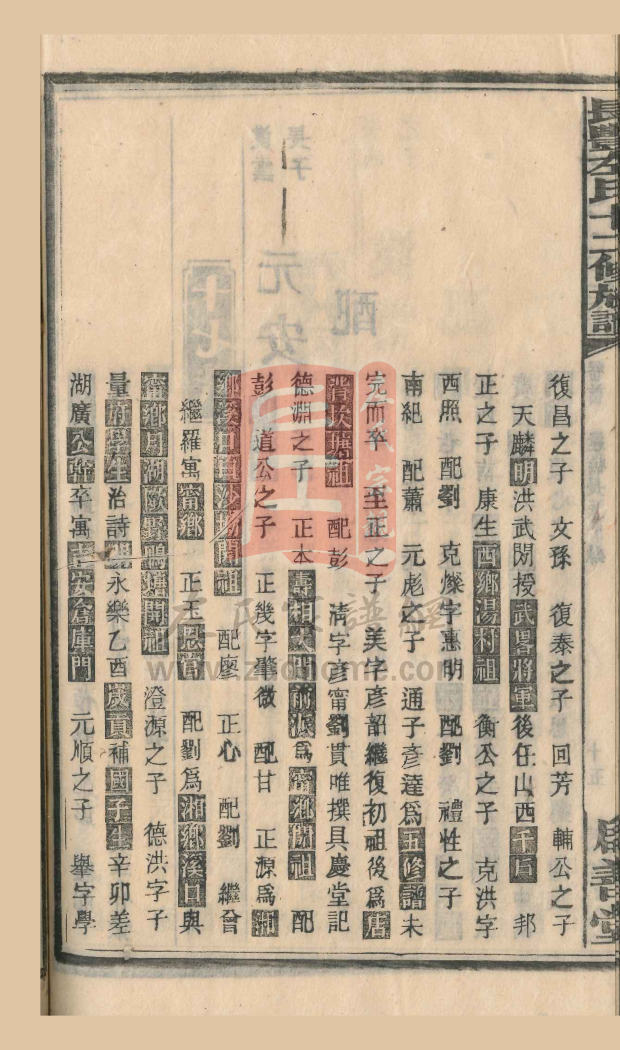 長豐左氏十二修族譜
復昌之子 文孫 復泰之子 回芳 輔公之子
天麟明洪武閔授武畧將軍後任山西千戶 邦
正之子 康生西鄉湯村祖 衡公之子 克洪字
西照 配劉 克燦字惠明 配劉 禮性之子
南紀 配蕭 元彪之子 通子彥達為五修譜未
完而卒 至正之子 美字彥韶繼復初祖後為
塘祖 配彭 清字彥甯劉貫唯撰具慶堂記
德淵之子 正本壽相大門前派為甯鄉開祖 配
彭 道公之子 正幾字肇微 配甘 正源為湘
鄉溪口白沙塲開祖 配廖 正心 配劉 繼曾
繼羅寓甯鄉 正玉恩官 配劉為湘鄉溪口與
甯鄉月湖鴨塘開祖 澄源之子 德洪字子
量府學生治詩明永樂乙酉歲貢補國子生辛卯差
湖廣公幹卒寓吉安倉庫門 元順之子 舉字學
元
安
配
長子
十五
善堂
左氏家譜網
www.zuohome.com